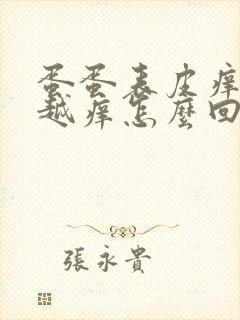 蛋蛋表皮痒
越痒怎麼回
張永貴